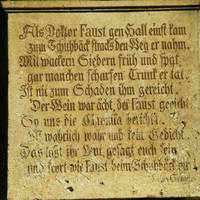 Als Doktor Faust gen Hall einst kam
zum Schuhbäck stracks den Weg er nahm.
Mit wackern Siedern früh und spat
gar manchen scharfen Trunk er tat.
Ist nit zum Schaden ihm gereicht.
Der Wein war ächt, bei Faust geeicht
So uns die Cronica bericht.
Ist wahrlich wahr und kein Gedicht.
Das laßt ihr Leut, gesagt euch sein
und Faust beim Schuhbäck